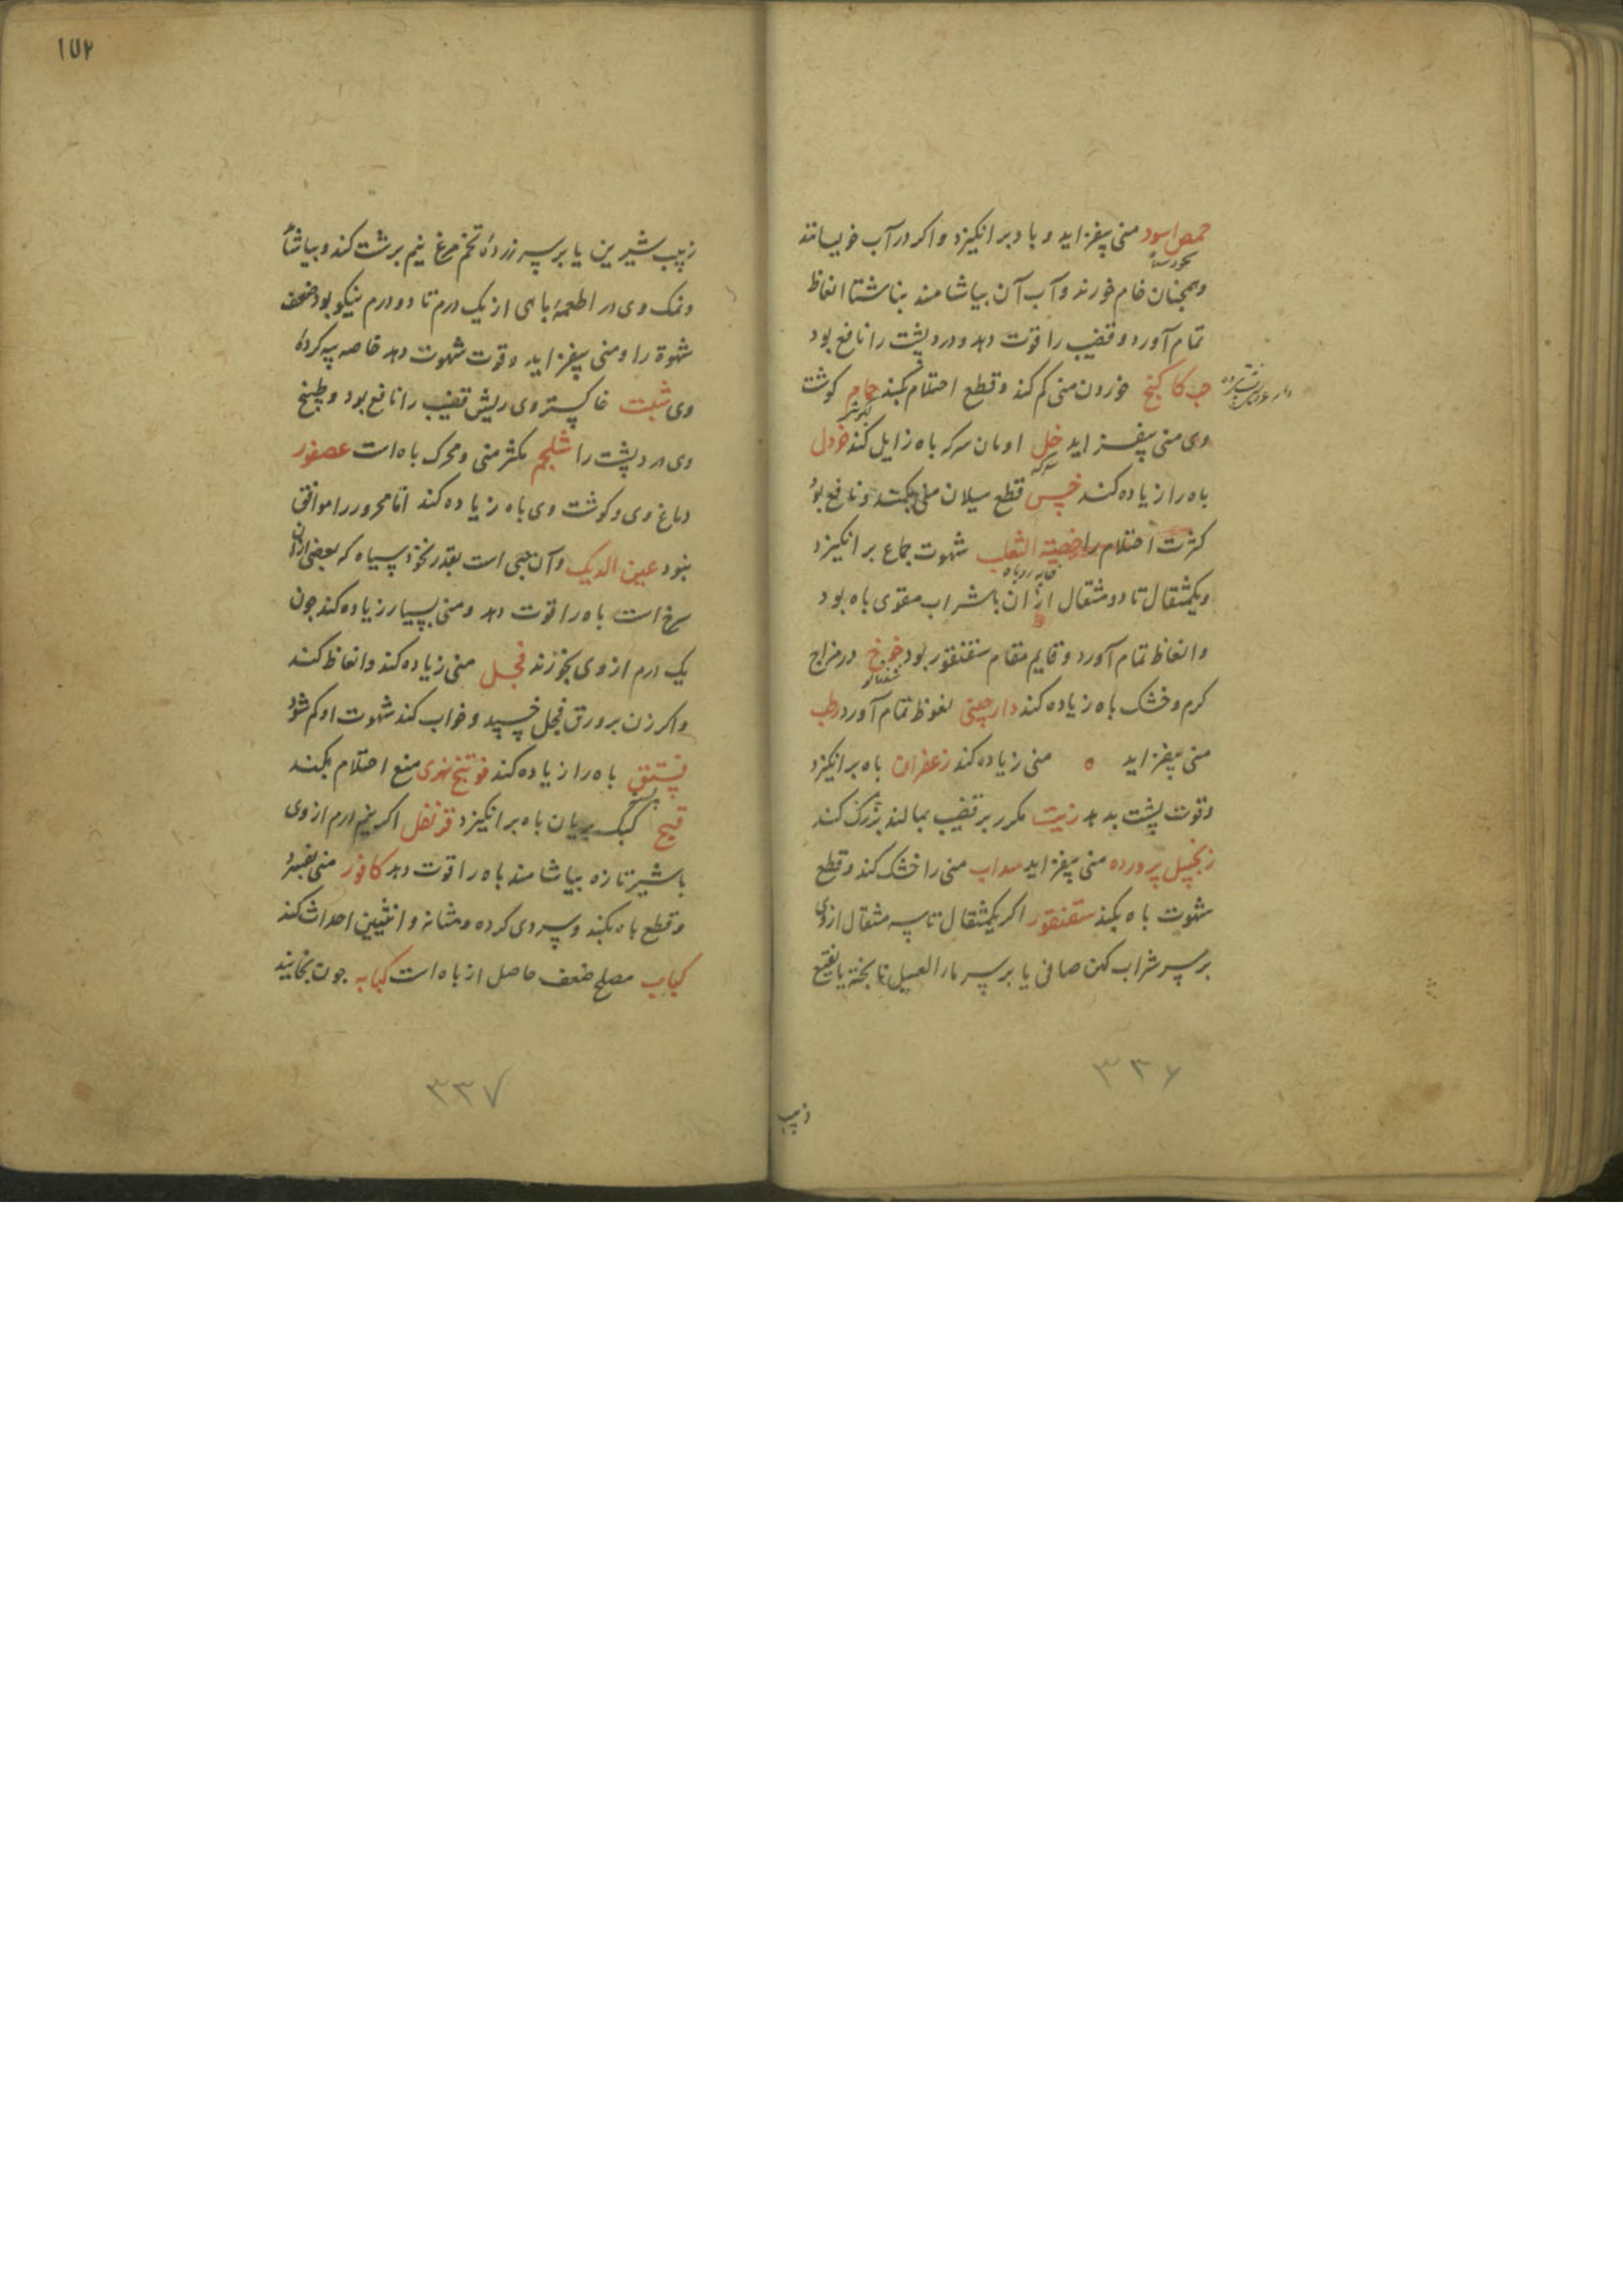 حمص اسود منی بیفزاید و باد برانکیزد و اکر در آب خویسانند
نخود سیاه
وهمچنان خام خورند و آب آن بیاشامند بناشتا انعاظ
تمام آورد و قضیب را قوت دهد و درد پشت را نافع بود
حب کاکنج خوردن منی کم کند و قطع احتلام بکند حمام کوشت
کبوتر
وی منی بیفزاید خل ادمان سرکه باه زایل کند خردل
سرکه
باه را زیاده کند خس قطع سیلان منی بکند و نافع بود
کثرت احتلام را خصیة الثعلب شهوت جماع برانکیزد
خایه روباه
ویکمثقال تا دو مثقال ازان با شراب مقوی باه بود
و انعاظ تمام آورد و قایم مقام سقنقور بود خوخ در مزاج
شفتالو
کرم و خشک باه زیاده کند دارچینی نغوظ تمام آورد رطب
منی بیفزاید ه منی زیاده کند زعفران باه برانکیزد
و قوت پشت بدهد زیت مکرر بر قضیب بمالند بزرک کند
زنجبیل پرورده منی بیفزاید سداب منی را خشک کند و قطع
شهوت باه بکند سقنقور اکر یکمثقال تا سه مثقال ازوی
بر سر شراب کهن صافی یا بر سر ماء العسل نابخته یا نقیع
۳۳۶
زبیب
۱۷۲
زبیب شیرین یا بر سر زردهٔ تخم مرغ نیم برشت کند و بیاشامد
و نمک وی در اطعمهٔ باهی از یک درم تا دو درم نیکو بود ضعف
شهوة را و منی بیفزاید و قوت شهوت دهد خاصه پیه کردهٔ
وی شبت خاکستر وی ریش قضیب را نافع بود و طبیخ
وی درد پشت را شلجم مکثر منی و محرک باه است عصفور
دماغ وی و کوشت وی باه زیاده کند اما محرور را موافق
نبود عین الدیک و آن حبی است بقدر نخود سیاه که بعضی ازان
سرخ است باه را قوت دهد و منی بسیار زیاده کند چون
یک درم از وی بخورند فجل منی زیاده کند و انعاظ کند
و اکر زن بر ورق فجل خسپد و خواب کند شهوت او کم شود
فستق باه را زیاده کند فوتنج نهری منع احتلام بکند
پسته
قبج کبک بریان باه برانکیزد قرنفل اکر نیم درم از وی
با شیر تازه بیاشامند باه را قوت دهد کافور منی بفسرد
و قطع باه بکند و سردی کرده و مثانه و انثیین احداث کند
کباب مصلح ضعف حاصل از باه است کبابه چون بخایند
۳۳۷